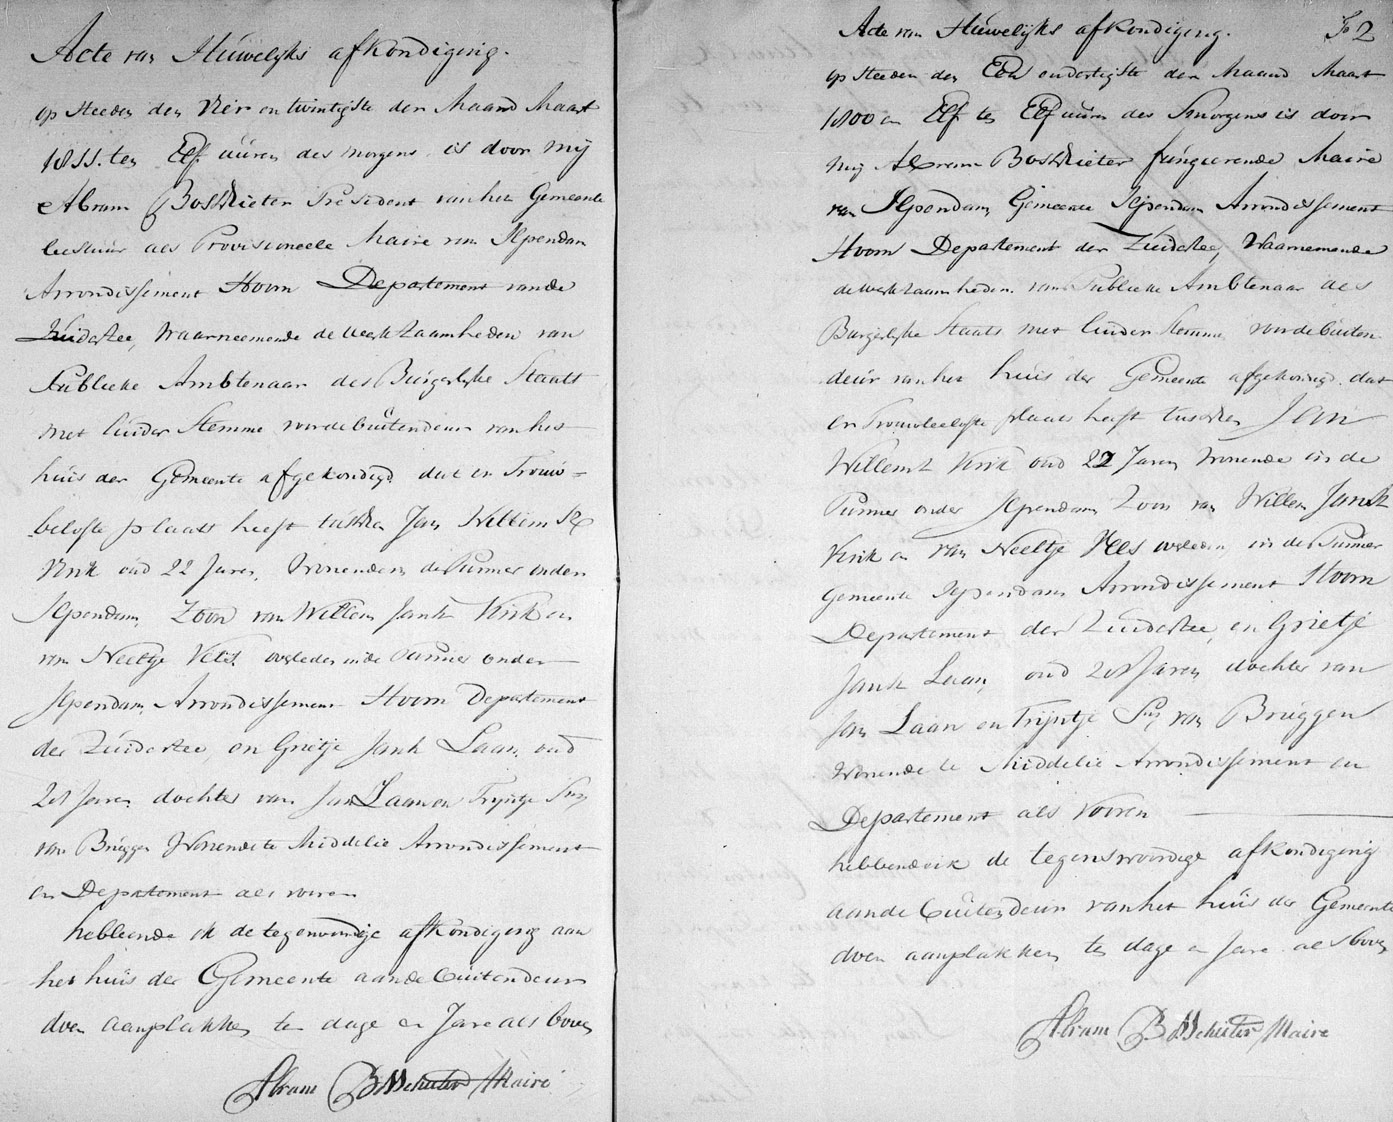 Acte van Huwelijks afkondiging.
op Heeden den Vier en twintigste der Maand Maart
1811. ten Elf uúren des morgens is door mij
Abram Bosschieter President van het Gemeente
bestuúr als Provisioneele Maire van Ilpendam
Arrondissement Hoorn Departement van de
Zuiderzee, Waarneemende de werkzaamheden van
Publieke Ambtenaar des Búrgerlyke Staats
met luider Stemme, voor de buitendeur van het
húis der Gemeente afgekondigd dat er Trouw-
belofte plaats heeft tusschen Jan Willemsz
Kerk oúd 22 Jaren, Wonende in de Purmer onder
Ilpendam, Zoon van Willem Jansz Kerk en
van Neeltje Vels overleden in de Purmer onder
Ilpendam, Arrondissement Hoorn Departement
der Zúiderzee, en Grietje Jansz Laan, oud
Jaren dochter van Jan Laan en Trijntje
van Brúggen Wonende te Middelie Arrondissement
en Departement als voren
hebbende ik de tegenwoordige afkondiging aan
het húis der Gemeente aan de búitendeur
doen aanplakken ten dage en Jare als boven
Abram Bosschieter Maire
Acte van Húwelijks afkondiging. Fo 2
op Heeden den Een en dertigste der Maand Maart
1800 en Elf ten Elf uúren des Smorgens is door
mij Abram Bosschieter fungeerende Maire
van Ilpendam, Gemeente Ilpendam Arrondissement
Hoorn Departement der Zuiderzee, Waarnemende
de werkzaamheden van Publieke Ambtenaar des
Burgerlyke Staats met luider Stemme, voor de buiten
deúr van het húis der Gemeente afgekondigd dat
er Trouwbelofte plaats heeft tusschen Jan
Willemsz Kerk oud 22 Jaren Wonende in de
Purmer onder Ilpendam, Zoon van Willem Jansz
Kerk en van Neeltje Vels overleden in de Purmer
Gemeente Ilpendam Arrondissement Hoorn
Departement der Zuiderzee, en Grietje
Jansz Laan, oud Jaren dochter van
Jan Laan en Trijntje van Brúggen
Wonende te Middelie Arrondissement en
Departement als Voren
hebbende ik de tegenswoordige afkondiging
aan de búitendeur van het húis der Gemeente
doen aanplakken ten dage en Jare als boven
Abram Bosschieter Maire